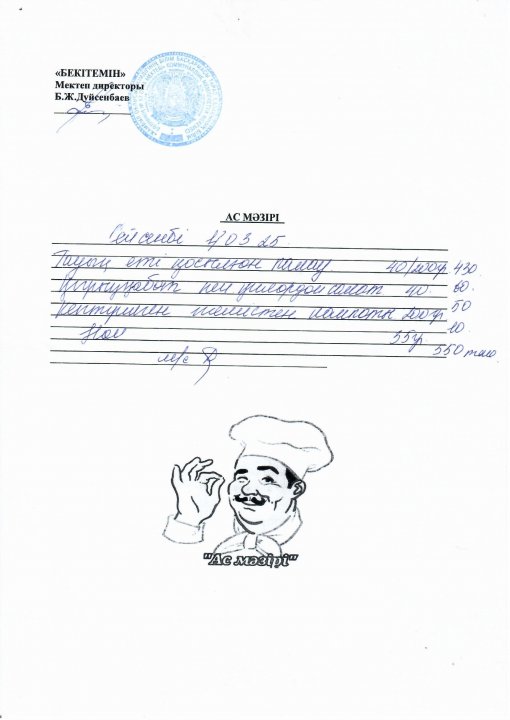 «БЕКІТЕМІН»
Мектеп директоры
Б.Ж.Дуйсенбаев
АС МӘЗІРІ
Сейсенбі 11 03 25
Тауық еті қосылған палау 40/200гр 430.
Қырыққабат пен салат 40. 60.
Кептірілген жемістен компоты 200гр 50
Нан 35гр. 10.
м/с 550 теңге
"Ас мәзірі"